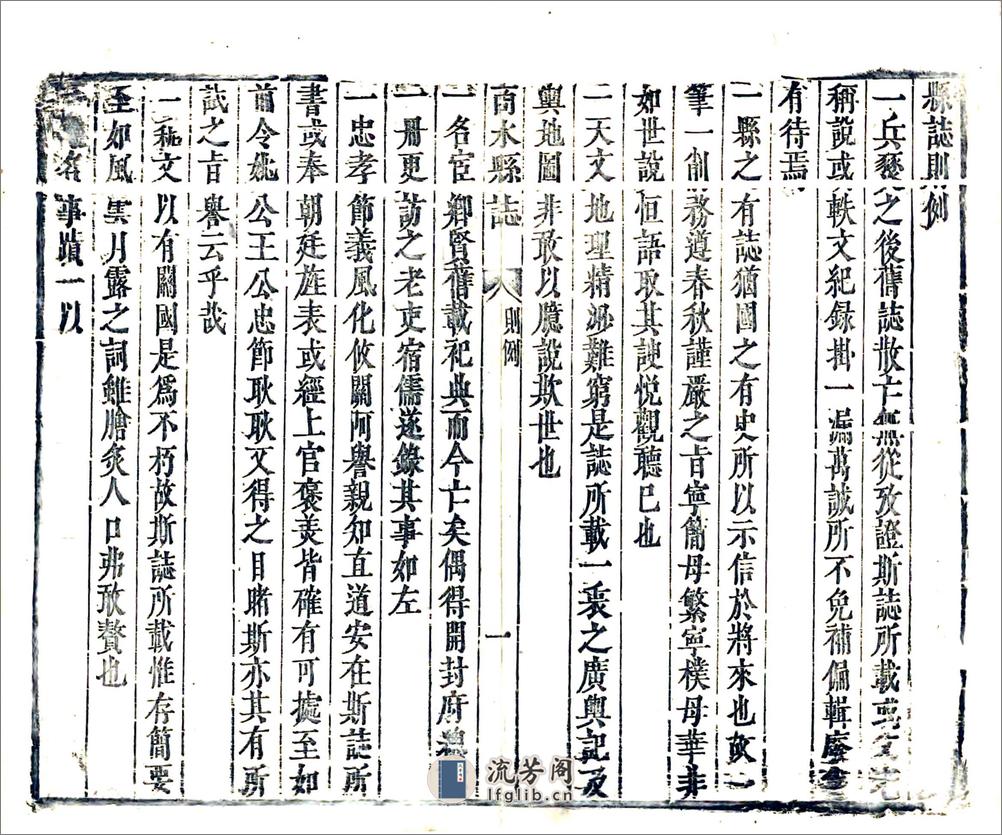 縣誌則例
一兵燹之後舊誌散亡無從攷證斯誌所載或父老
稱說或軼文紀錄掛一漏萬誠所不免補偏輯廢
有待焉
一縣之有誌猶國之有史所以示信於將來也故一
筆一削務遵春秋謹嚴之旨寧簡毋繁寧樸毋華非
如世說恒語取其諛悅觀聽已也
一天文地理精渺難窮是誌所載一衷之廣輿記及
輿地圖非敢以臆說欺世也
商水縣誌 則例 一
一名宦鄉賢舊載祀典而今亡矣偶得開封府
一冊更訪之老吏宿儒遂錄其事如左
一忠孝節義風化攸關阿譽親知直道安在斯誌所
書或奉朝廷旌表或經上官褒美皆確有可據至如
前令姚公王公忠節耿耿又得之目睹斯亦其有所
試之旨譽云乎哉
一藝文以有關國是為不朽故斯誌所載惟存簡要
至如風雲月露之詞雖膾炙人口弗敢贅也
名 事蹟一以
流芳阁
lfglib.cn